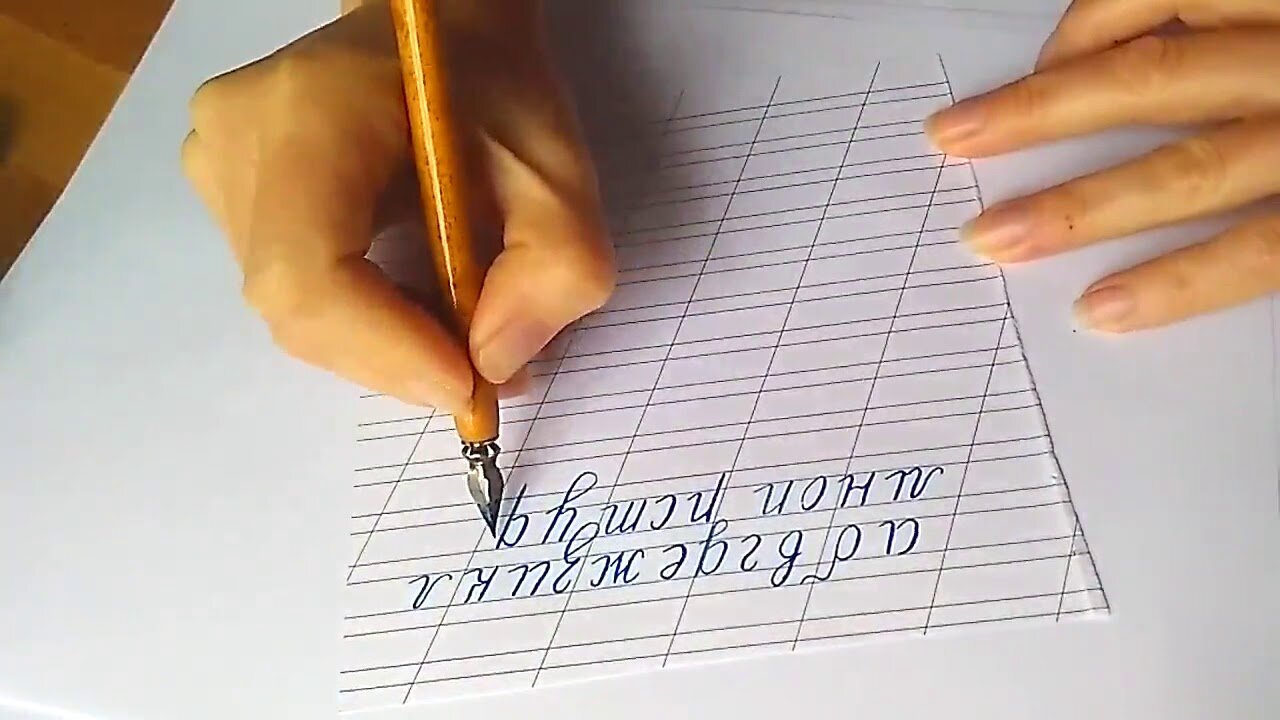 а б в г д е ж з и к л
м н о п р с т у